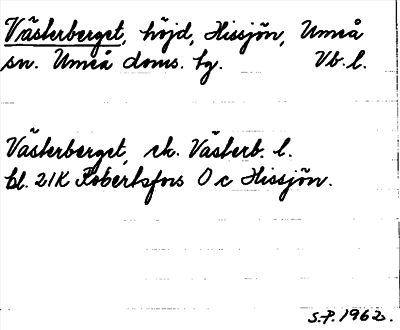 Västerberget, höjd, Hissjön, Umeå
sn. Umeå doms. tg. Vb. l.
Västerberget, ek. Västerb. l.
bl. 21K Robertsfors O c Hissjön.
S.P. 1962.